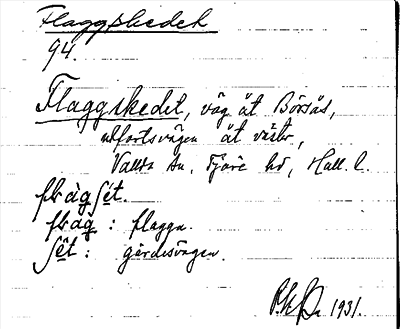 Flaggskedet
94.
Flaggskedet, väg åt Börsås,
utfartsvägen åt väster,
Vallda sn, Fjäre hd, Hall. l.
flàg ʃét.
flàg : flagga.
ʃét : gärdesvägen.
1931.